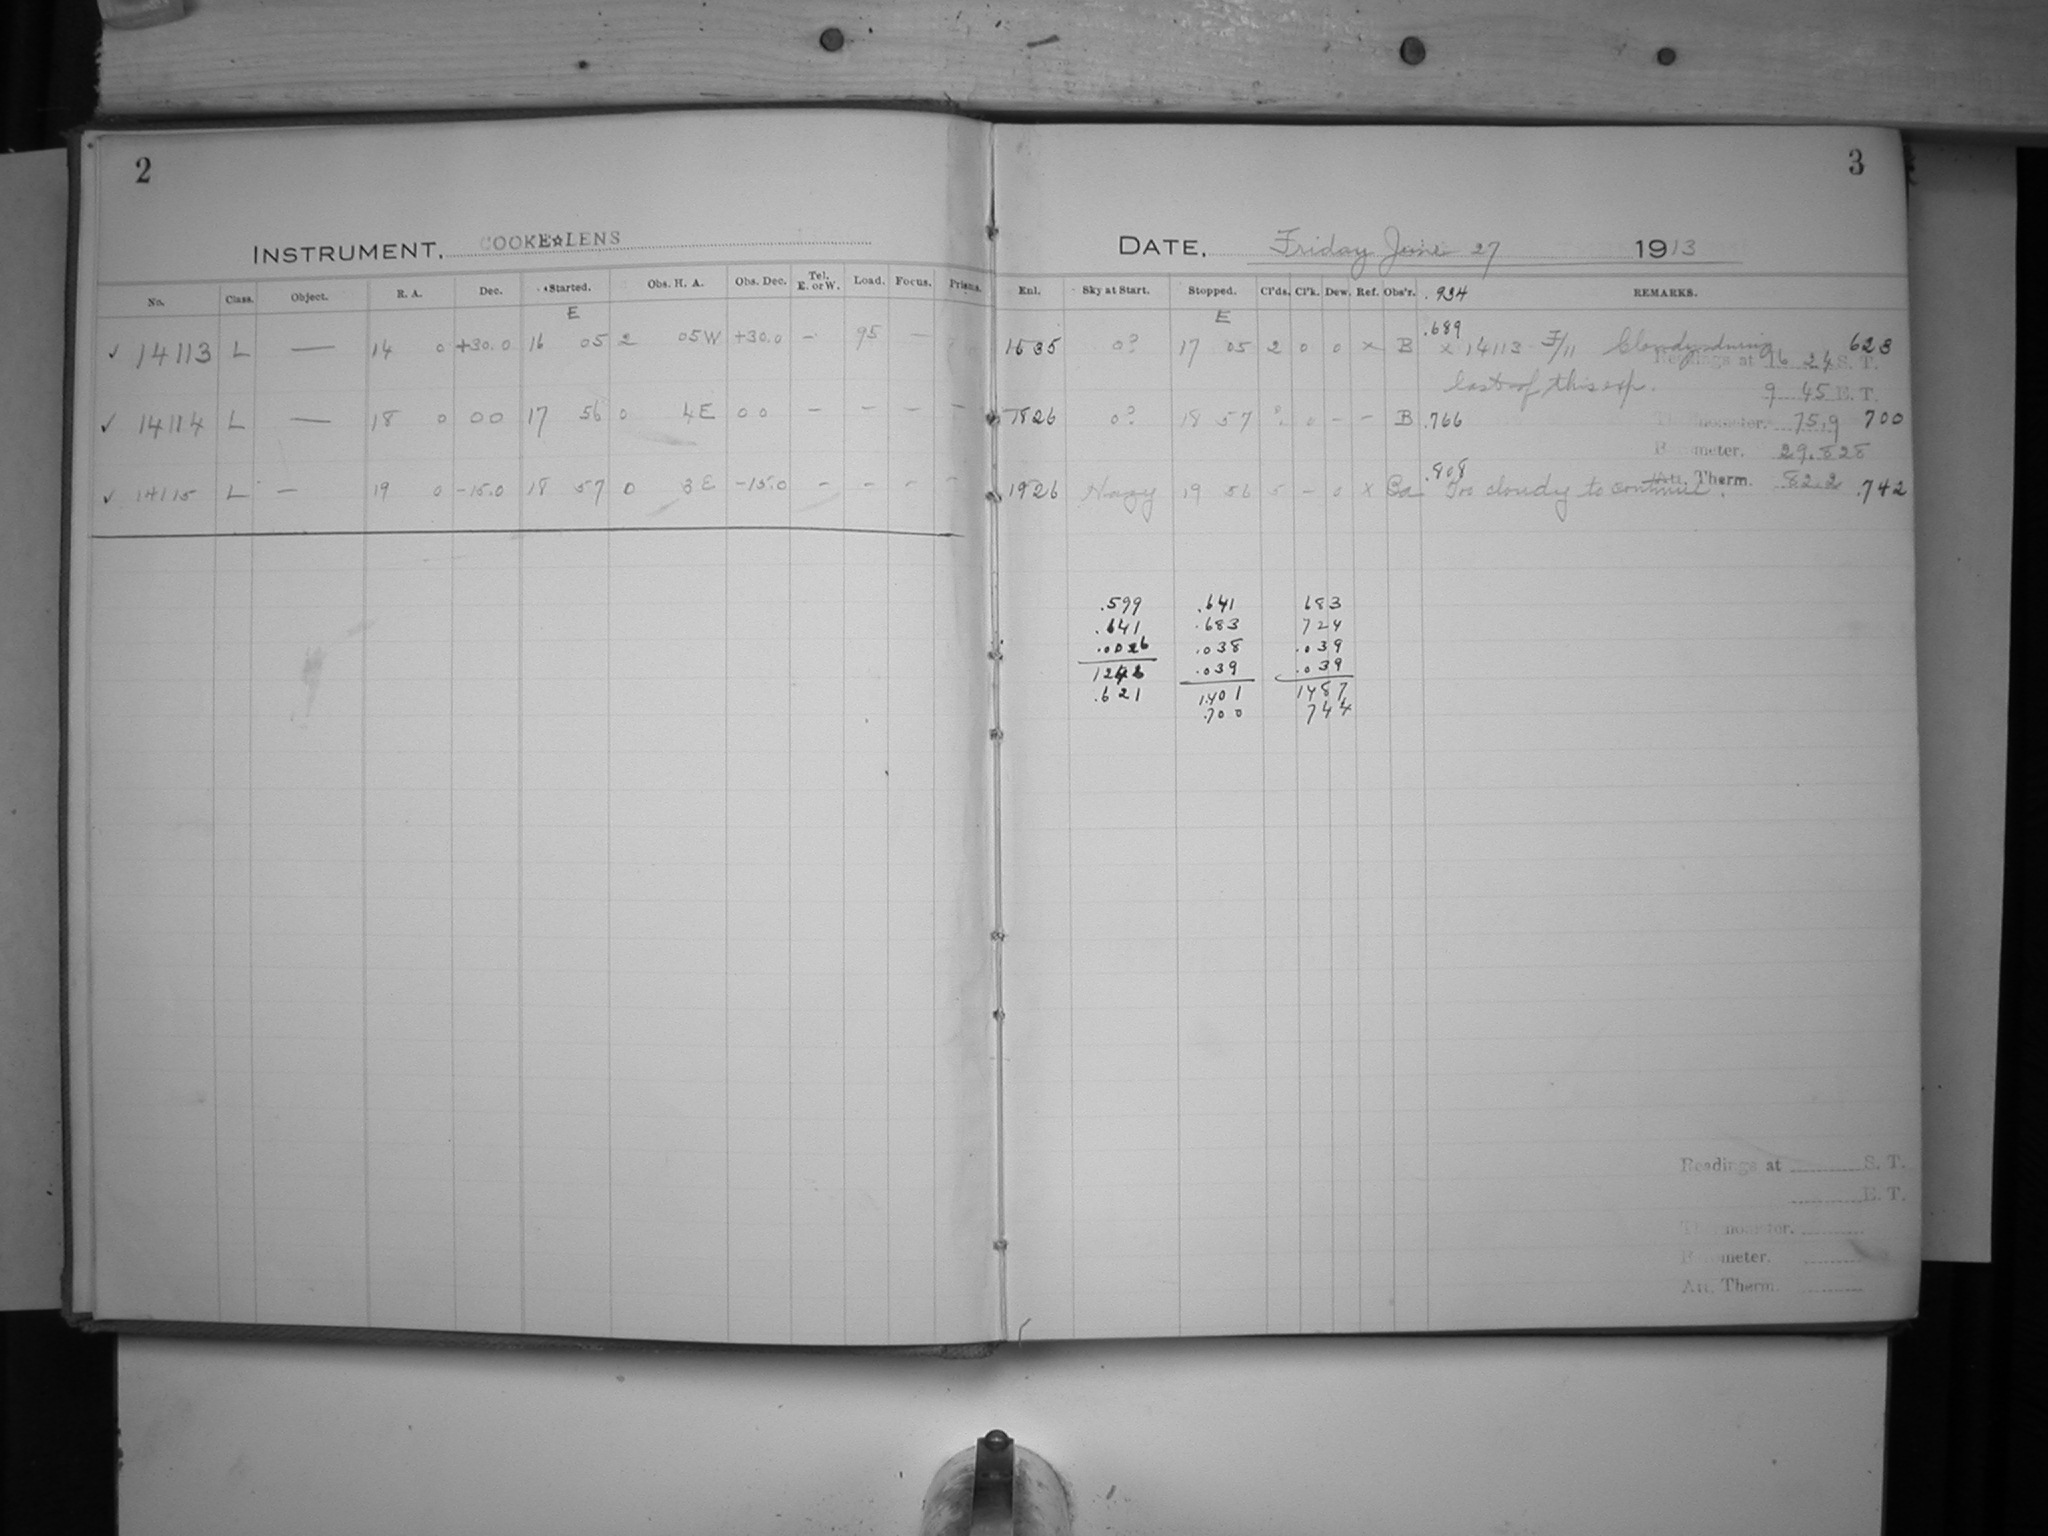 2
INSTRUMENT. COOKE☆LENS
No. Class. Object. R. A. Dec. Started. Obs. H. A. Obs. Dec. Tel. E. or W. Load. Focus. Prisms.
E
✓ 14113 L — 14 0 +30.0 16 05 2 05W +30.0 – 95 –
✓ 14114 L — 18 0 00 17 56 0 4E 00 – – – –
✓ 14115 L — 19 0 -15.0 18 57 0 3E -15.0 – – – –
3
DATE. Friday June 27 1913
Enl. Sky at Start. Stopped. Cl'ds. Cl'k. Dew. Ref. Obs'r. .934 REMARKS.
E
.689
1635 0? 17 05 2 0 0 × B × 14113 F/11 Cloudy during 623
Readings at 16 24 S. T.
last of this exp.
9 45 E. T.
1826 0? 18 57 ? 0 – – B .766
Thermometer. 75.9 700
Barometer. 29.828
.808
1926 Hazy 19 56 5 – 0 × Ca Too cloudy to continue. .742
Att. Therm. 82.2
.599 .641 683
.641 .683 724
.0026 .038 .039
.039 .039
1.401 1487
.621 .700 744
Readings at S. T.
E. T.
Thermometer.
Barometer.
Att. Therm.